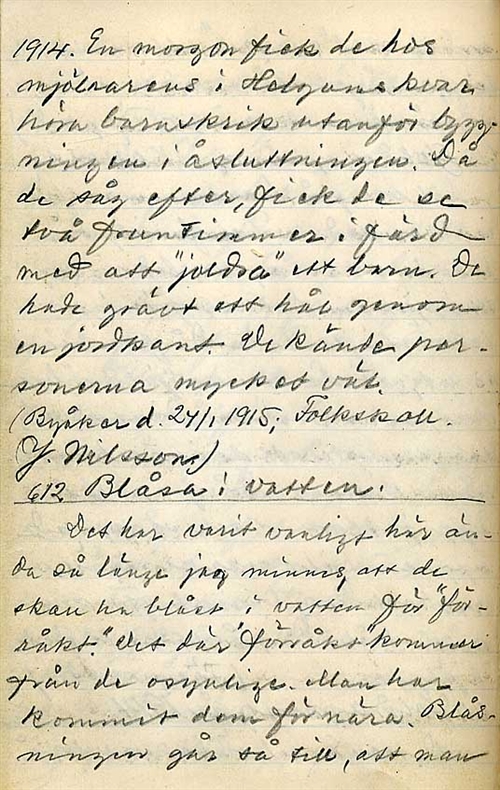 1914. En morgon fick de hos
mjölnarens i Helgums kvarn
höra barnskrik utanför bygg-
ningen i åsluttningen. Då
de såg efter, fick de se
två fruntimmer i färd
med att "joldra" ett barn. De
hade grävt ett hål genom
en jordkant. De kände per-
sonerna mycket väl.
(Byåker d. 24/1 1915; Folkskoll.
J. Nilsson.)
612 Blåsa i vatten.
Det har varit vanligt här än-
da så länge jag minns, att de
skall ha blåst i vatten för "för-
råkt." Det där "förråkt" kommer
från de osynliga. Man har
kommit dem för nära. Blås-
ningen går så till, att man